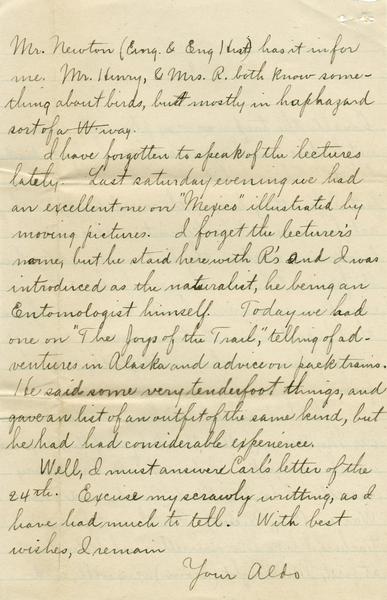 Mr. Newton (Eng. & Eng Hist) has it in for
me. Mr. Henry, & Mrs. R. both know some-
thing about birds, but mostly in haphazard
sort of a way.
I have forgotten to speak of the lectures
lately. Last saturday evening we had
an excellent one on "Mexico" illustrated by
moving pictures. I forget the lecturer's
name, but he staid here with R's and I was
introduced as the naturalist, he being an
Entomologist himself. Today we had
one on "The Joys of the Trail," telling of ad-
ventures in Alaska and advice on pack trains.
He said some very tenderfoot things, and
gave an list of an outfit of the same kind, but
he had had considerable experience.
Well, I must answer Carl's letter of the
24th. Excuse my scrawly writting, as I
have had much to tell. With best
wishes, I remain
Your Aldo